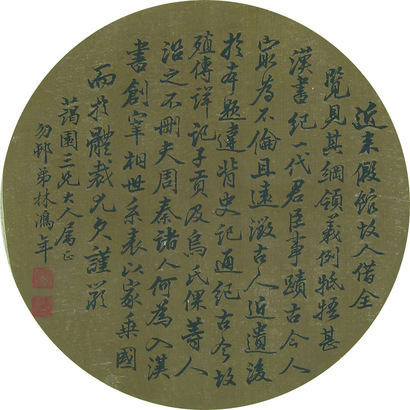 近來假館故人借全
覽見其綱領義例牴牾甚
漢書紀一代君臣事蹟古今人
家為不倫且遠徵古人近遺後
於本題違背史記通紀古今故
殖傳詳記子貢及烏氏倮等人
沿之不刪夫周秦諸人何為入漢
書創宰相世系表以家乘國
而於體裁尤乡謹嚴
蔼園三兄大人属正
勿邨弟林鴻年